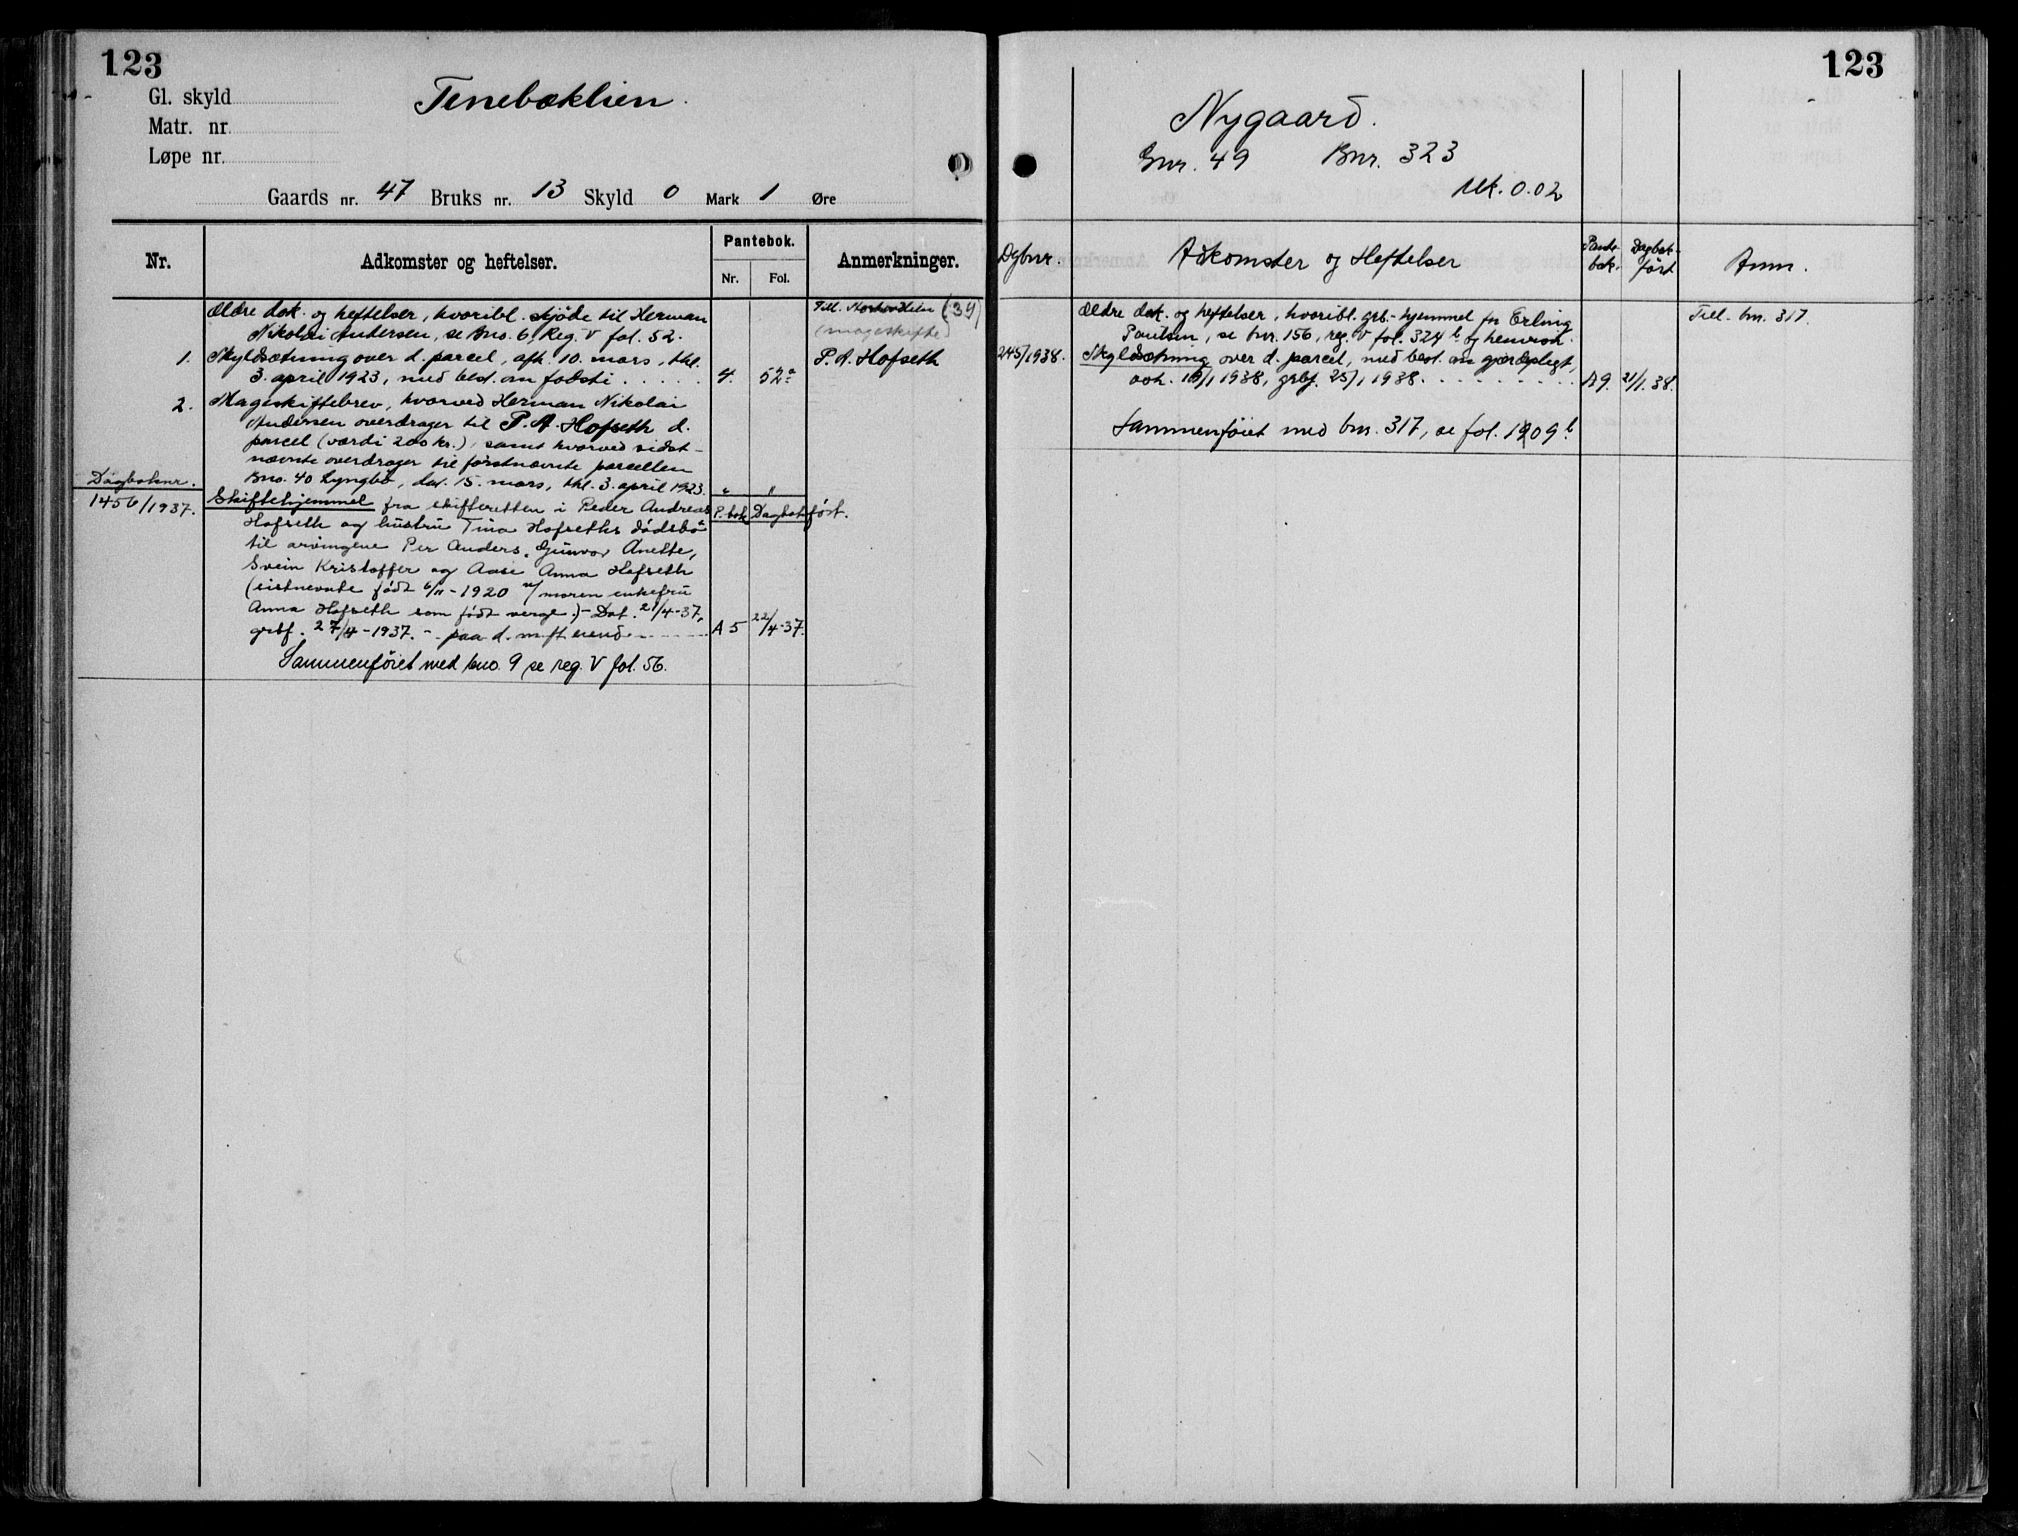 123
Tenebæklien.
Gl. skyld
Matr. nr.
Løpe nr.
Gaards nr. 47 Bruks nr. 13 Skyld 0 Mark 1 Øre
Nr.
Adkomster og heftelser.
Pantebok.
Nr. Fol.
Anmerkninger.
Ældre dok. og heftelser, hvoribl. skjöde til Herman
Nikolai Andersen, se Bno. 6, Reg. V fol. 52.
Till. (34)
(mageskifte)
1. Skyldsætning over d. parcel, afh. 10. mars, thl.
3. april 1923, med best. om fodsti . . . . . 4. 52a
P. A. Hofseth
2. Mageskiftebrev, hvorved Herman Nikolai
Andersen overdrager til P. A. Hofseth d.
parcel (værdi 200 kr.), samt hvorved sidst-
nævnte overdrager til förstnævnte parcellen
Bno. 40 Lyngbö, dat. 15. mars, thl. 3. april 1923. " "
Dagboknr.
1456/1937.
Skiftehjemmel fra skifteretten i Peder Andreas
P. bok Dagbokført.
Hofseth og hustru Tina Hofseths dödsbo
til arvingene Per Anders, Gunvor Anette,
Svein Kristoffer og Aase Anna Hofseth
(sistnevnte födt 6/11-1920 m/moren enkefru
Anna Hofseth som födt verge.) - Dat. 21/4-37,
grbf. 27/4-1937. - paa d. m. ft. eiend. A 5 22/4-37.
Sammenföiet med bno. 9 se reg. V fol. 56.
123
Nygaard.
Gnr. 49 Bnr. 323
Mk. 0.02
Dgbnr.
Adkomster og Heftelser
Pante-
bok.
Dagbok-
ført
Anm.
Ældre dok. og heftelser, hvoribl. grb.-hjemmel for Erling
Till. bnr. 317.
Paulsen, se bnr. 156, reg. V fol. 324 b og henvisn.
245/1938. Skyldsætning over d. parcel, med best. om gjærdeplegt,
avh. 19/1 1938, grbf. 25/1 1938. . . . . . . . . . A9. 21/1.38.
Sammenföiet med bnr. 317, se fol. 109 b.